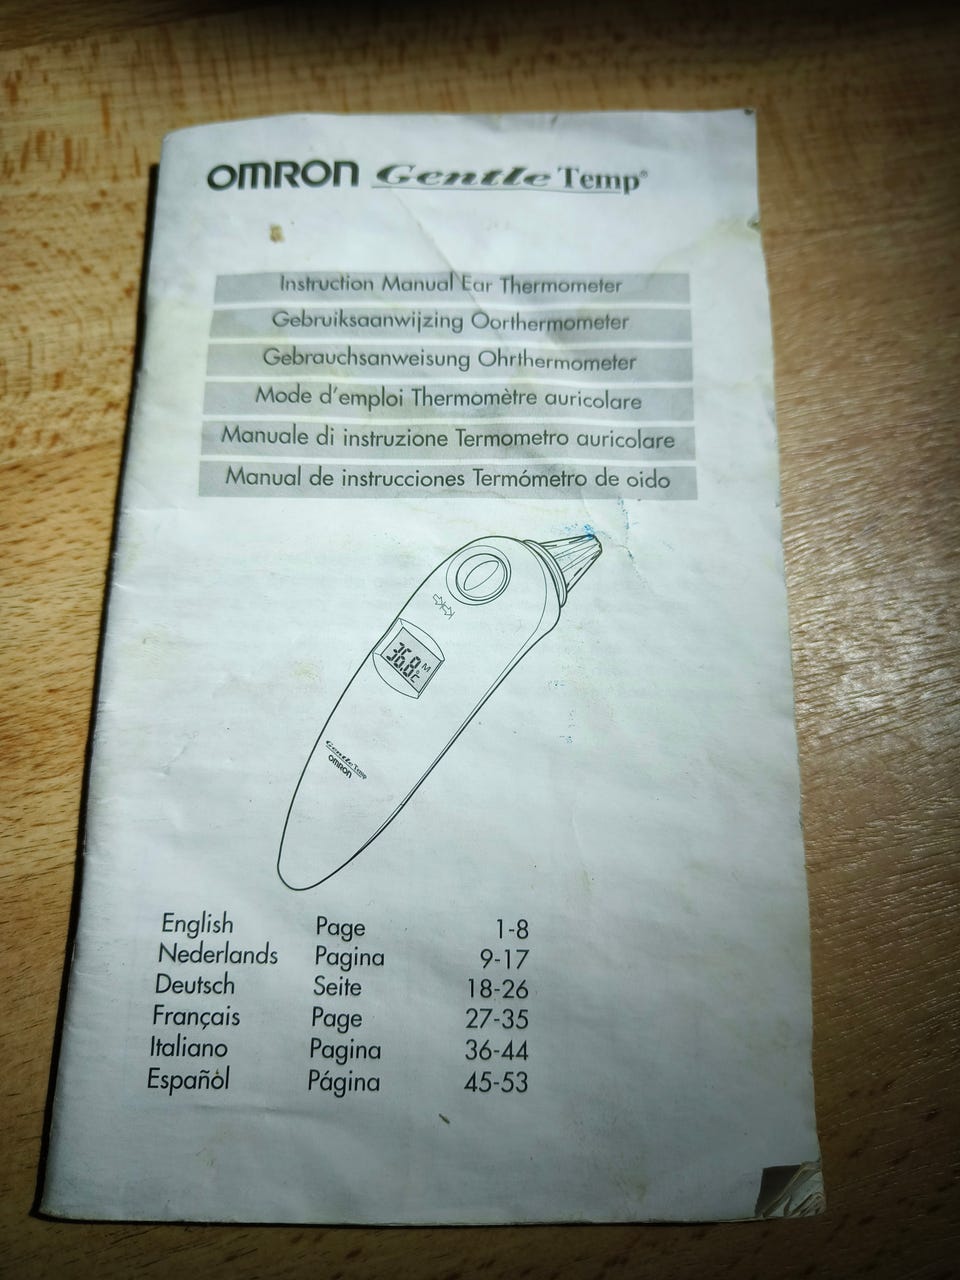 OMRON Gentle Temp®
Instruction Manual Ear Thermometer
Gebruiksaanwijzing Oorthermometer
Gebrauchsanweisung Ohrthermometer
Mode d'emploi Thermomètre auricolare
Manuale di instruzione Termometro auricolare
Manual de instrucciones Termómetro de oido
36.8°C M
Gentle Temp
OMRON
English Page 1-8
Nederlands Pagina 9-17
Deutsch Seite 18-26
Français Page 27-35
Italiano Pagina 36-44
Español Página 45-53